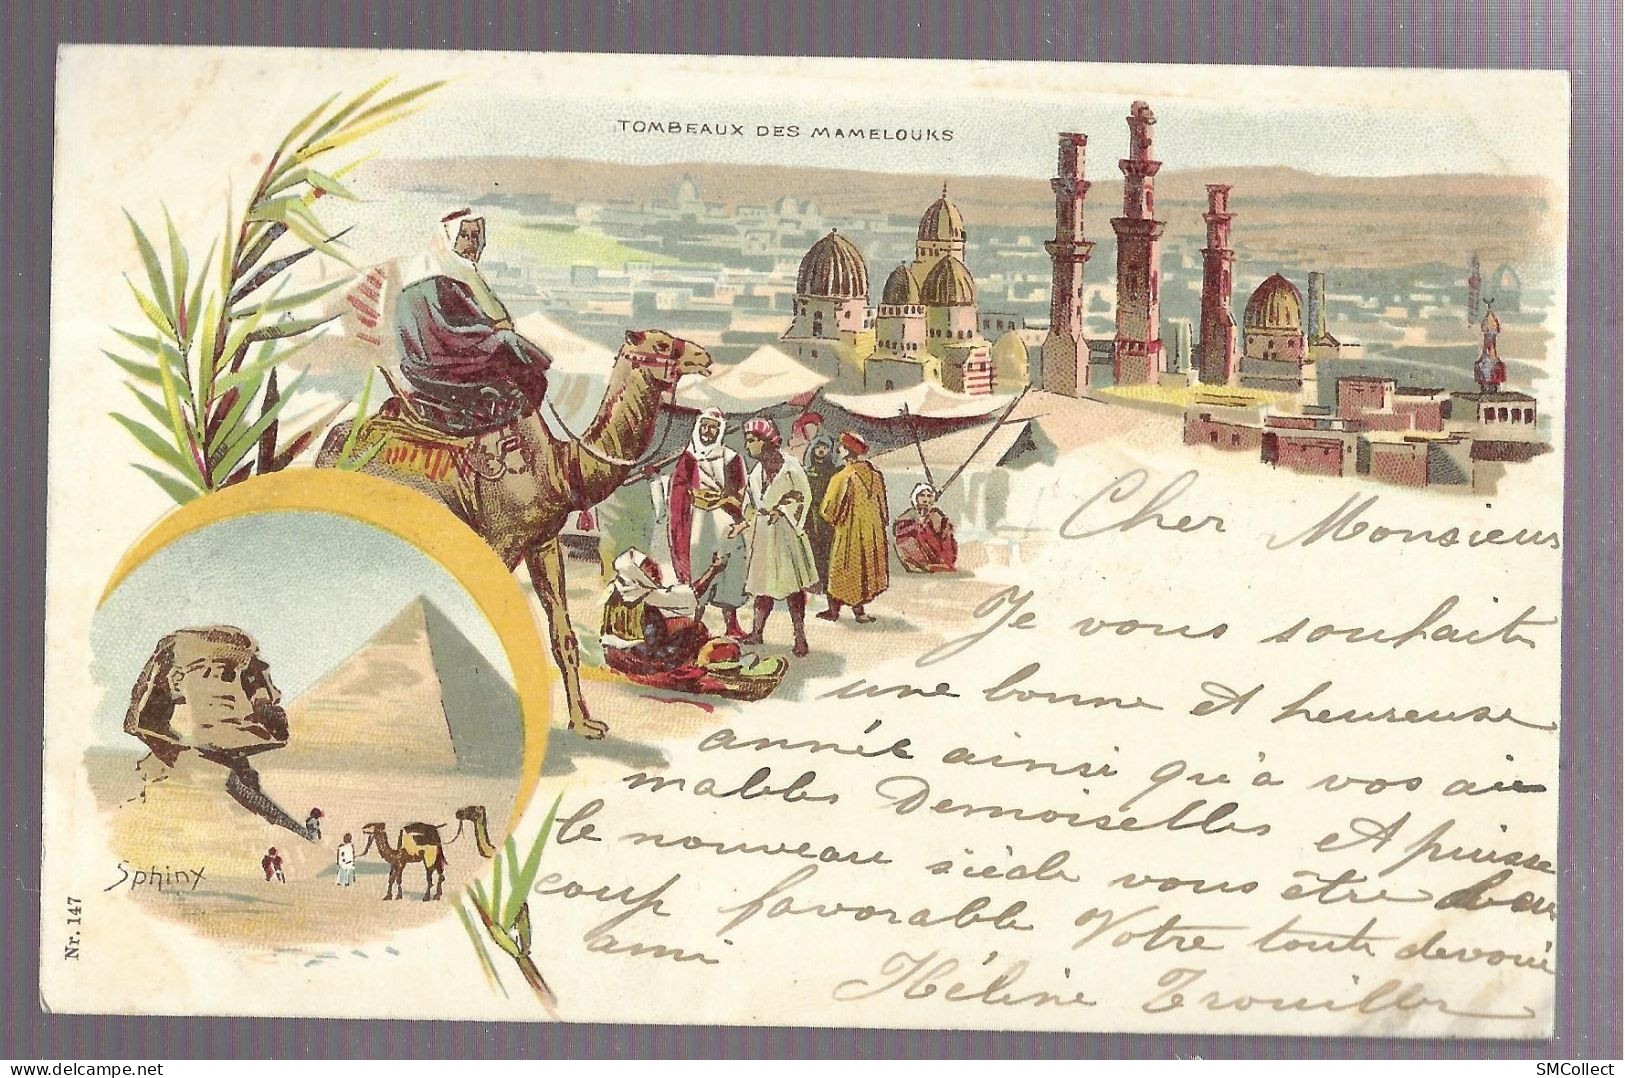 TOMBEAUX DES MAMELOUKS
Cher Monsieur
Je vous souhaite
une bonne et heureuse
année ainsi qu'à vos ai
mables Demoiselles et puisse
le nouveau siècle vous être beau
coup favorable Votre toute devouée
ami Héline Trouiller
Sphinx
Nr. 147
SMCollect